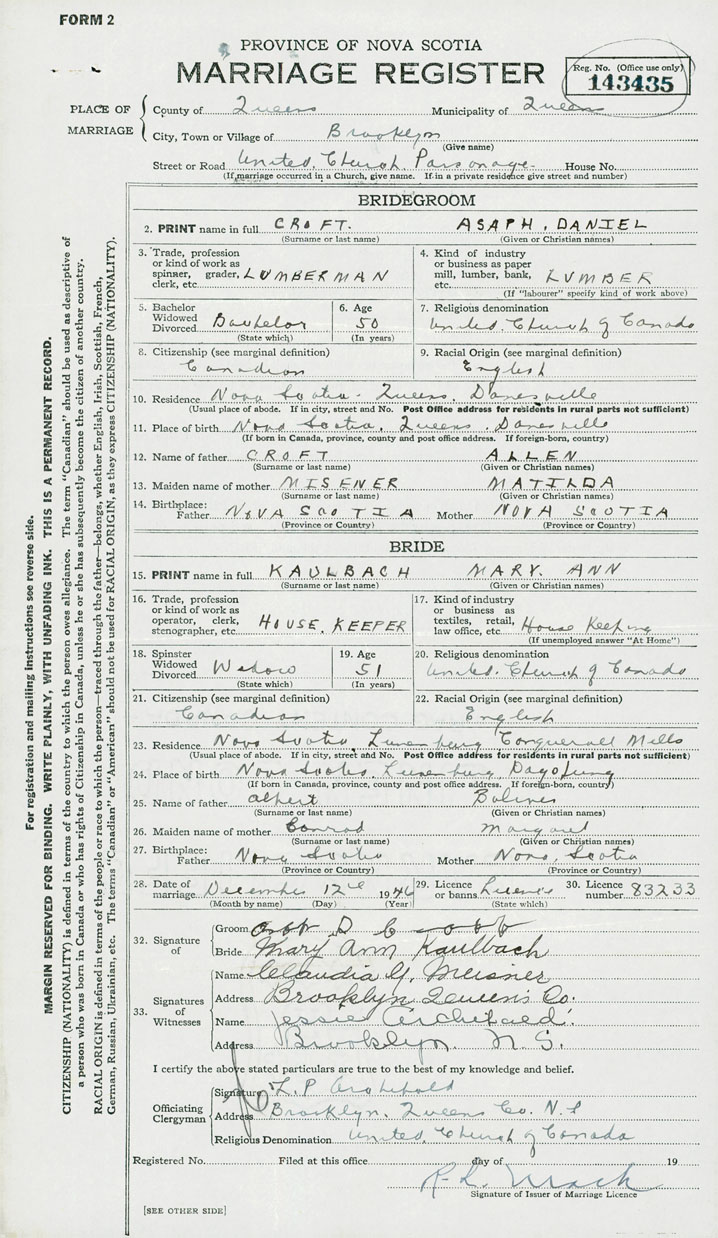 FORM 2
PROVINCE OF NOVA SCOTIA
MARRIAGE REGISTER
Reg. No. (Office use only)
143435
PLACE OF MARRIAGE
County of Queens Municipality of Queens
City, Town or Village of Brooklyn
(Give name)
Street or Road United Church Parsonage House No.
(If marriage occurred in a Church, give name. If in a private residence give street and number)
BRIDEGROOM
2. PRINT name in full CROFT. ASAPH, DANIEL
(Surname or last name) (Given or Christian names)
3. Trade, profession or kind of work as spinner, grader, clerk, etc. LUMBERMAN
4. Kind of industry or business as paper mill, lumber, bank, etc. LUMBER
(If "labourer" specify kind of work above)
5. Bachelor Widowed Divorced Bachelor
(State which)
6. Age 50
(In years)
7. Religious denomination
United Church of Canada
8. Citizenship (see marginal definition)
Canadian
9. Racial Origin (see marginal definition)
English
10. Residence Nova Scotia - Queens, Danesville
(Usual place of abode. If in city, street and No. Post Office address for residents in rural parts not sufficient)
11. Place of birth Nova Scotia, Queens, Danesville
(If born in Canada, province, county and post office address. If foreign-born, country)
12. Name of father CROFT ALLEN
(Surname or last name) (Given or Christian names)
13. Maiden name of mother MISENER MATILDA
(Surname or last name) (Given or Christian names)
14. Birthplace: Father NOVA SCOTIA Mother NOVA SCOTIA
(Province or Country) (Province or Country)
BRIDE
15. PRINT name in full KAULBACH MARY. ANN
(Surname or last name) (Given or Christian names)
16. Trade, profession or kind of work as operator, clerk, stenographer, etc. HOUSE. KEEPER
17. Kind of industry or business as textiles, retail, law office, etc. House Keeping
(If unemployed answer "At Home")
18. Spinster Widowed Divorced Widow
(State which)
19. Age 51
(In years)
20. Religious denomination
United Church of Canada
21. Citizenship (see marginal definition)
Canadian
22. Racial Origin (see marginal definition)
English
23. Residence Nova Scotia, Lunenburg Conquerall Mills
(Usual place of abode. If in city, street and No. Post Office address for residents in rural parts not sufficient)
24. Place of birth Nova Scotia, Lunenburg
(If born in Canada, province, county and post office address. If foreign-born, country)
25. Name of father Albert
(Surname or last name) (Given or Christian names)
26. Maiden name of mother Conrad Margaret
(Surname or last name) (Given or Christian names)
27. Birthplace: Father Nova Scotia Mother Nova Scotia
(Province or Country) (Province or Country)
28. Date of marriage December 12 1946
(Month by name) (Day) (Year)
29. Licence or banns Licence
(State which)
30. Licence number 83233
32. Signature of
Groom
Bride Mary Ann Kaulbach
33. Signatures of Witnesses
Name Claudia G. Meisner
Address Brooklyn Queens Co.
Name Jessie Archibald.
Address Brooklyn. N. S.
I certify the above stated particulars are true to the best of my knowledge and belief.
Officiating Clergyman
Signature L. P Archibald
Address Brooklyn, Queens Co. N. S
Religious Denomination United Church of Canada
Registered No. Filed at this office day of 19
R. L.
Signature of Issuer of Marriage Licence
[SEE OTHER SIDE]
For registration and mailing instructions see reverse side.
MARGIN RESERVED FOR BINDING. WRITE PLAINLY, WITH UNFADING INK. THIS IS A PERMANENT RECORD.
CITIZENSHIP (NATIONALITY) is defined in terms of the country to which the person owes allegiance. The term "Canadian" should be used as descriptive of
a person who was born in Canada or who has rights of Citizenship in Canada, unless he or she has subsequently become the citizen of another country.
RACIAL ORIGIN is defined in terms of the people or race to which the person—traced through the father—belongs, whether English, Irish, Scottish, French,
German, Russian, Ukrainian, etc. The terms "Canadian" or "American" should not be used for RACIAL ORIGIN, as they express CITIZENSHIP (NATIONALITY).